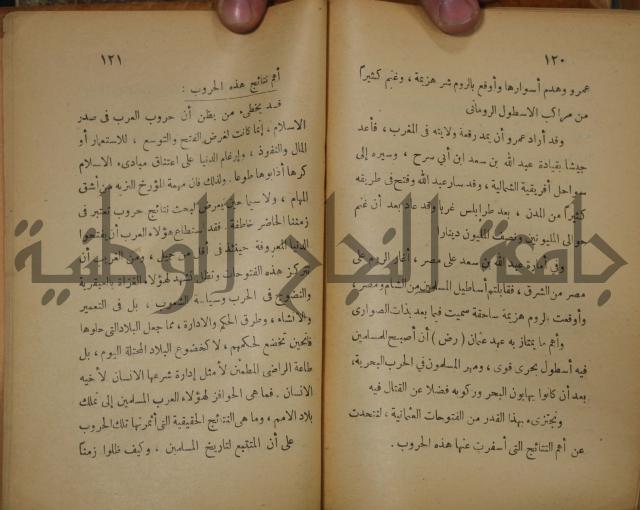 ١٢٠
عمرو وهدم أسوارها وأوقع بالروم شر هزيمة ، وغنم كثيراً
من مراكب الاسطول الرومانى
وقد أراد عمرو أن يمد رقعة ولايته فى المغرب ، فأعد
جيشا بقيادة عبد الله بن سعد ابن أبي سرح ، وسيره إلى
سواحل أفريقية الشمالية ، وقد سار عبد الله وفتح فى طريقه
كثيراً من المدن ، بعد طرابلس غربا وقد عاد بعد أن غنم
حوالى المليونين ونصف المليون ديناراً
وفي امارة عبد الله بن سعد على مصر ، أغار الروم على
مصر من الشرق ، فقابلتهم أساطيل المسلمين من الشام ومصر ،
وأوقعت بالروم هزيمة ساحقة سميت فيما بعد بذات الصوارى
وأهم ما يمتاز به عهد عثمان ( رض ) أن أصبح للمسلمين
فيه أسطول بحرى قوى ، ومهر المسلمون في الحرب البحرية ،
بعد أن كانوا يهابون البحر وركوبه فضلا عن القتال فيه
ونجتزىء بهذا القدر من الفتوحات العثمانية ، لنتحدث
عن أهم النتائج التى أسفرت عنها هذه الحروب .
١٢١
أهم نتائج هذه الحروب :
قد يخطىء من يظن أن حروب العرب فى صدر
الاسلام ، إنما كانت لغرض الفتح والتوسع ، للاستعمار أو
المال والنفوذ ، ولإرغام الدنيا على اعتناق مبادىء الاسلام
كرها أذابوها طوعا . ولذلك فان مهمة المؤرخ النزيه من أشق
المهام ، ولا سيما حين يعرض لبحث نتائج حروب تعتبر فى
زمننا الحاضر خاطفة . فقد استطاع هؤلاء العرب أن يفتحوا
الدنيا المعروفة حينئذ فى أقل من جيل ، ومن الغريب أن
تتركز هذه الفتوحات وتظل تشهد لهؤلاء الغزاة بالعبقرية
والنضوج فى الحرب وسياسة الشعوب ، بل فى التعمير
والانشاء ، وطرق الحكم والادارة ، مما جعل البلاد التى حلوها
فاتحين تخضع لحكمهم ، لا كخضوع البلاد المحتلة اليوم ، بل
طاعة الراضى المطمئن لأمثل إدارة شرعها الانسان لأخيه
الانسان . فما هى الحوافز لهؤلاء العرب المسلمين إلى تملك
بلاد الامم ، وما هى النتائج الحقيقية التى أثمرتها تلك الحروب
على أن المتتبع لتاريخ المسلمين ، وكيف ظلوا زمناً
جامعة النجاح الوطنية